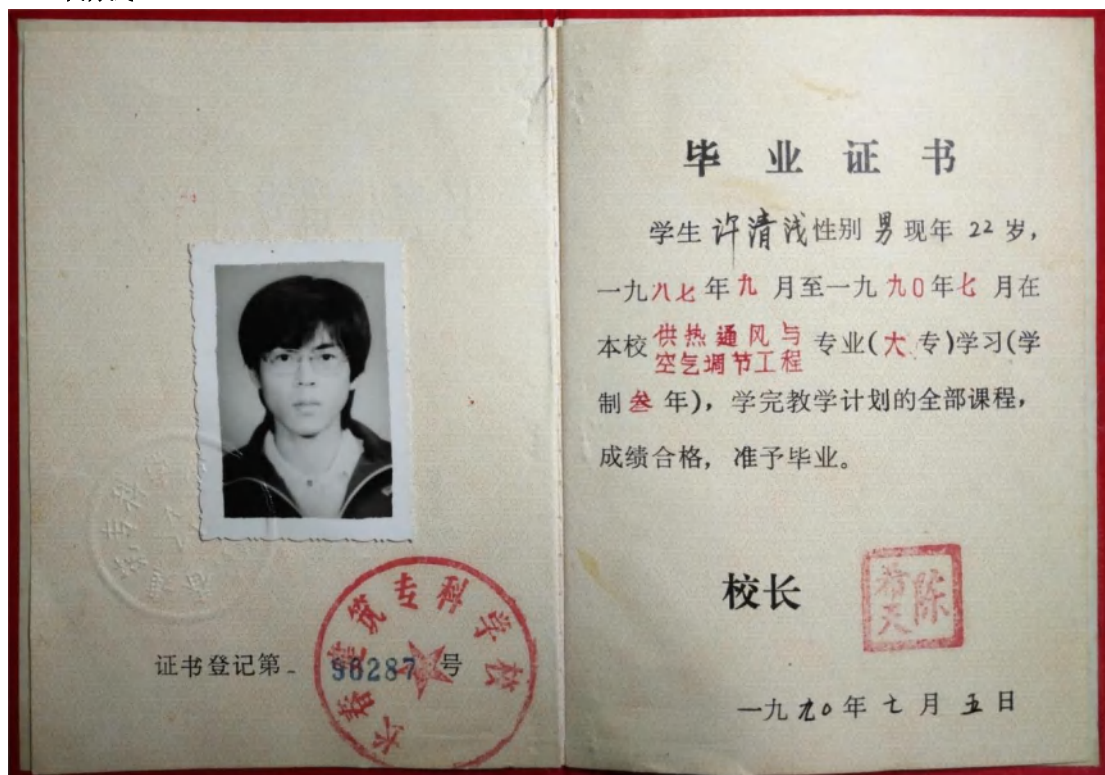 证书登记第 90287 号
长春建筑专科学校
毕业证书
学生 许清浅 性别 男 现年 22 岁,
一九八七年九月至一九九0年七月在
本校 供热通风与
空气调节工程 专业(大专)学习(学
制叁年), 学完教学计划的全部课程,
成绩合格, 准予毕业。
校长
陈
一九九0年七月五日